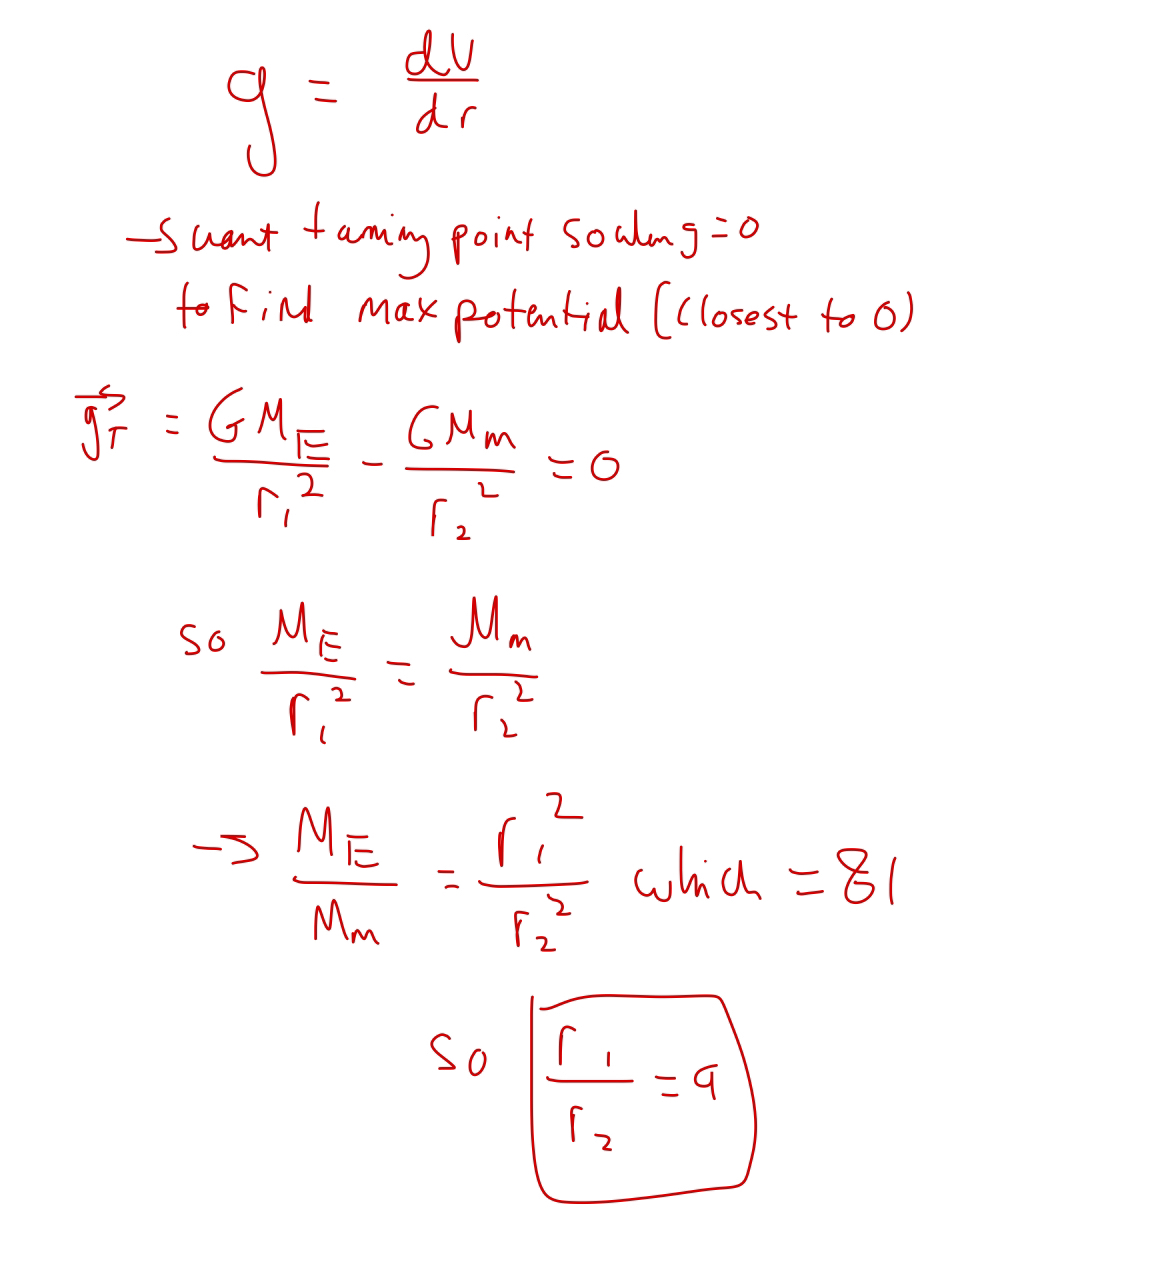 g = dV/dr
→ want turning point so when g=0
to find max potential (closest to 0)
g⃗_T = GM_E/r₁² - GM_m/r₂² = 0
so M_E/r₁² = M_m/r₂²
→ M_E/M_m = r₁²/r₂² which = 81
so r₁/r₂ = 9